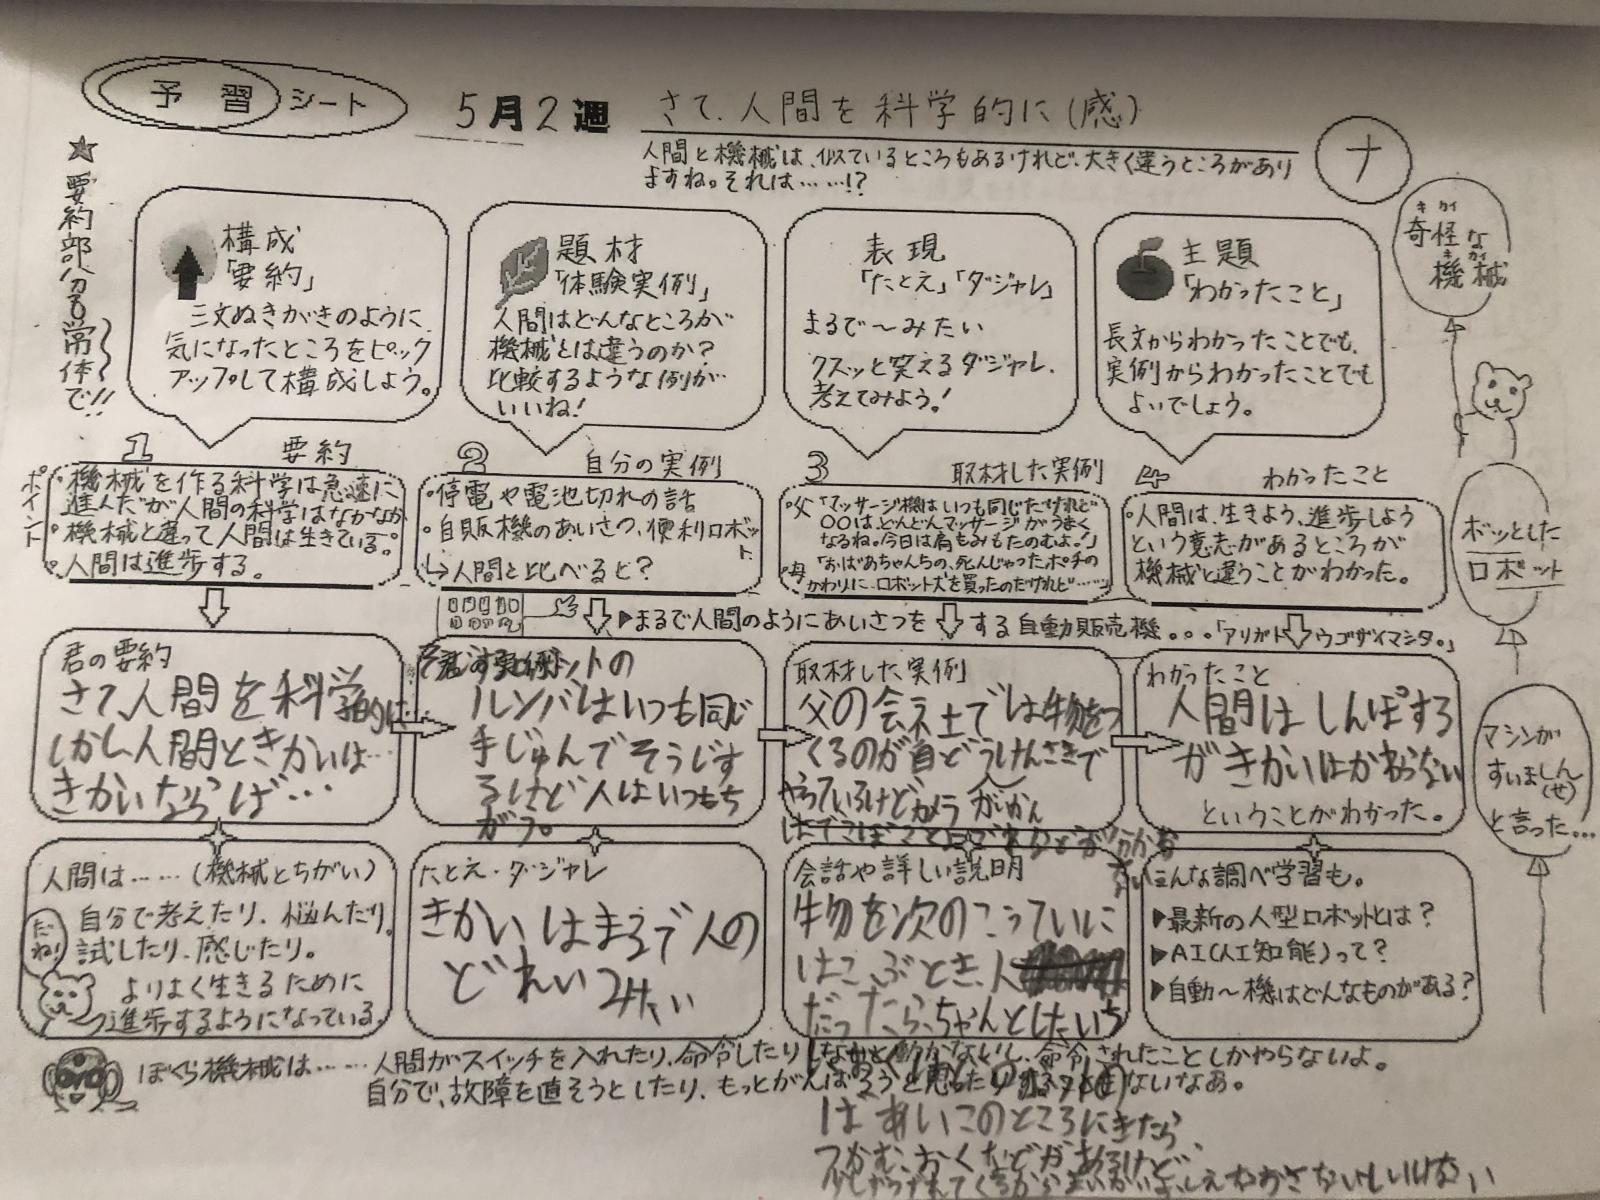 予習シート
5月2週
さて、人間を科学的に(感)
人間と機械は、似ているところもあるけれど、大きく違うところがあり
ますね。それは……!?
ナ
★要約部分を常体で!!
構成
「要約」
三文ぬきがきのように
気になったところをピック
アップして構成しよう。
題材
「体験実例」
人間はどんなところが
機械とは違うのか?
比較するような例が
いいね!
表現
「たとえ」「ダジャレ」
まるで〜みたい
クスッと笑えるダジャレ、
考えてみよう!
主題
「わかったこと」
長文からわかったことでも、
実例からわかったことでも
よいでしょう。
キカイ
奇怪な
キカイ
機械
1 要約
ポイント
・機械を作る科学は急速に
進んだが人間の科学はなかなか
・機械と違って人間は生きている。
・人間は進歩する。
2 自分の実例
・停電や電池切れの話
・自販機のあいさつ、便利ロボット
↳人間と比べると?
3 取材した実例
・父「マッサージ機はいつも同じだけれど
〇〇は、どんどんマッサージがうまく
なるね。今日は肩もみもたのむよ!」
・母「おばあちゃんちの、死んじゃったポチの
かわりに、ロボット犬を買ったのだけれど……」
4 わかったこと
・人間は、生きよう、進歩しよう
という意志があるところが
機械と違うことがわかった。
ボッとした
ロボット
▶まるで人間のようにあいさつをする自動販売機。。。「アリガトウゴザイマシタ。」
君の要約
さて、人間を科学的に…
しかし人間ときかいは…
きかいならば…
ルンバはいつも同じ
手じゅんでそうじす
るけど人はいつもち
がう。
取材した実例
父の会社では物をつ
くるのが自どうけんさきで
やっているけどカメラ
わかったこと
人間はしんぽする
がきかいはかわらない
ということがわかった。
マシンが
すいましん
(せ)
と言った…
人間は……(機械とちがい)
自分で考えたり、悩んだり、
試したり、感じたり。
よりよく生きるために
進歩するようになっている
だね!
たとえ・ダジャレ
きかいはまるで人の
どれいみたい
会話や詳しい説明
物を次のこうていに
はこぶとき、人
だったら、ちゃんとしたいち
はあいこのところにきたら
つかむ、おくなどがあるけど、
こんな調べ学習も。
▶最新の人型ロボットとは?
▶AI(人工知能)って?
▶自動〜機はどんなものがある?
ぼくら機械は……人間がスイッチを入れたり、命令したりしないと動かないし、命令されたことしかやらないよ。
自分で、故障を直そうとしたり、もっとがんばろうと思ったりないなあ。